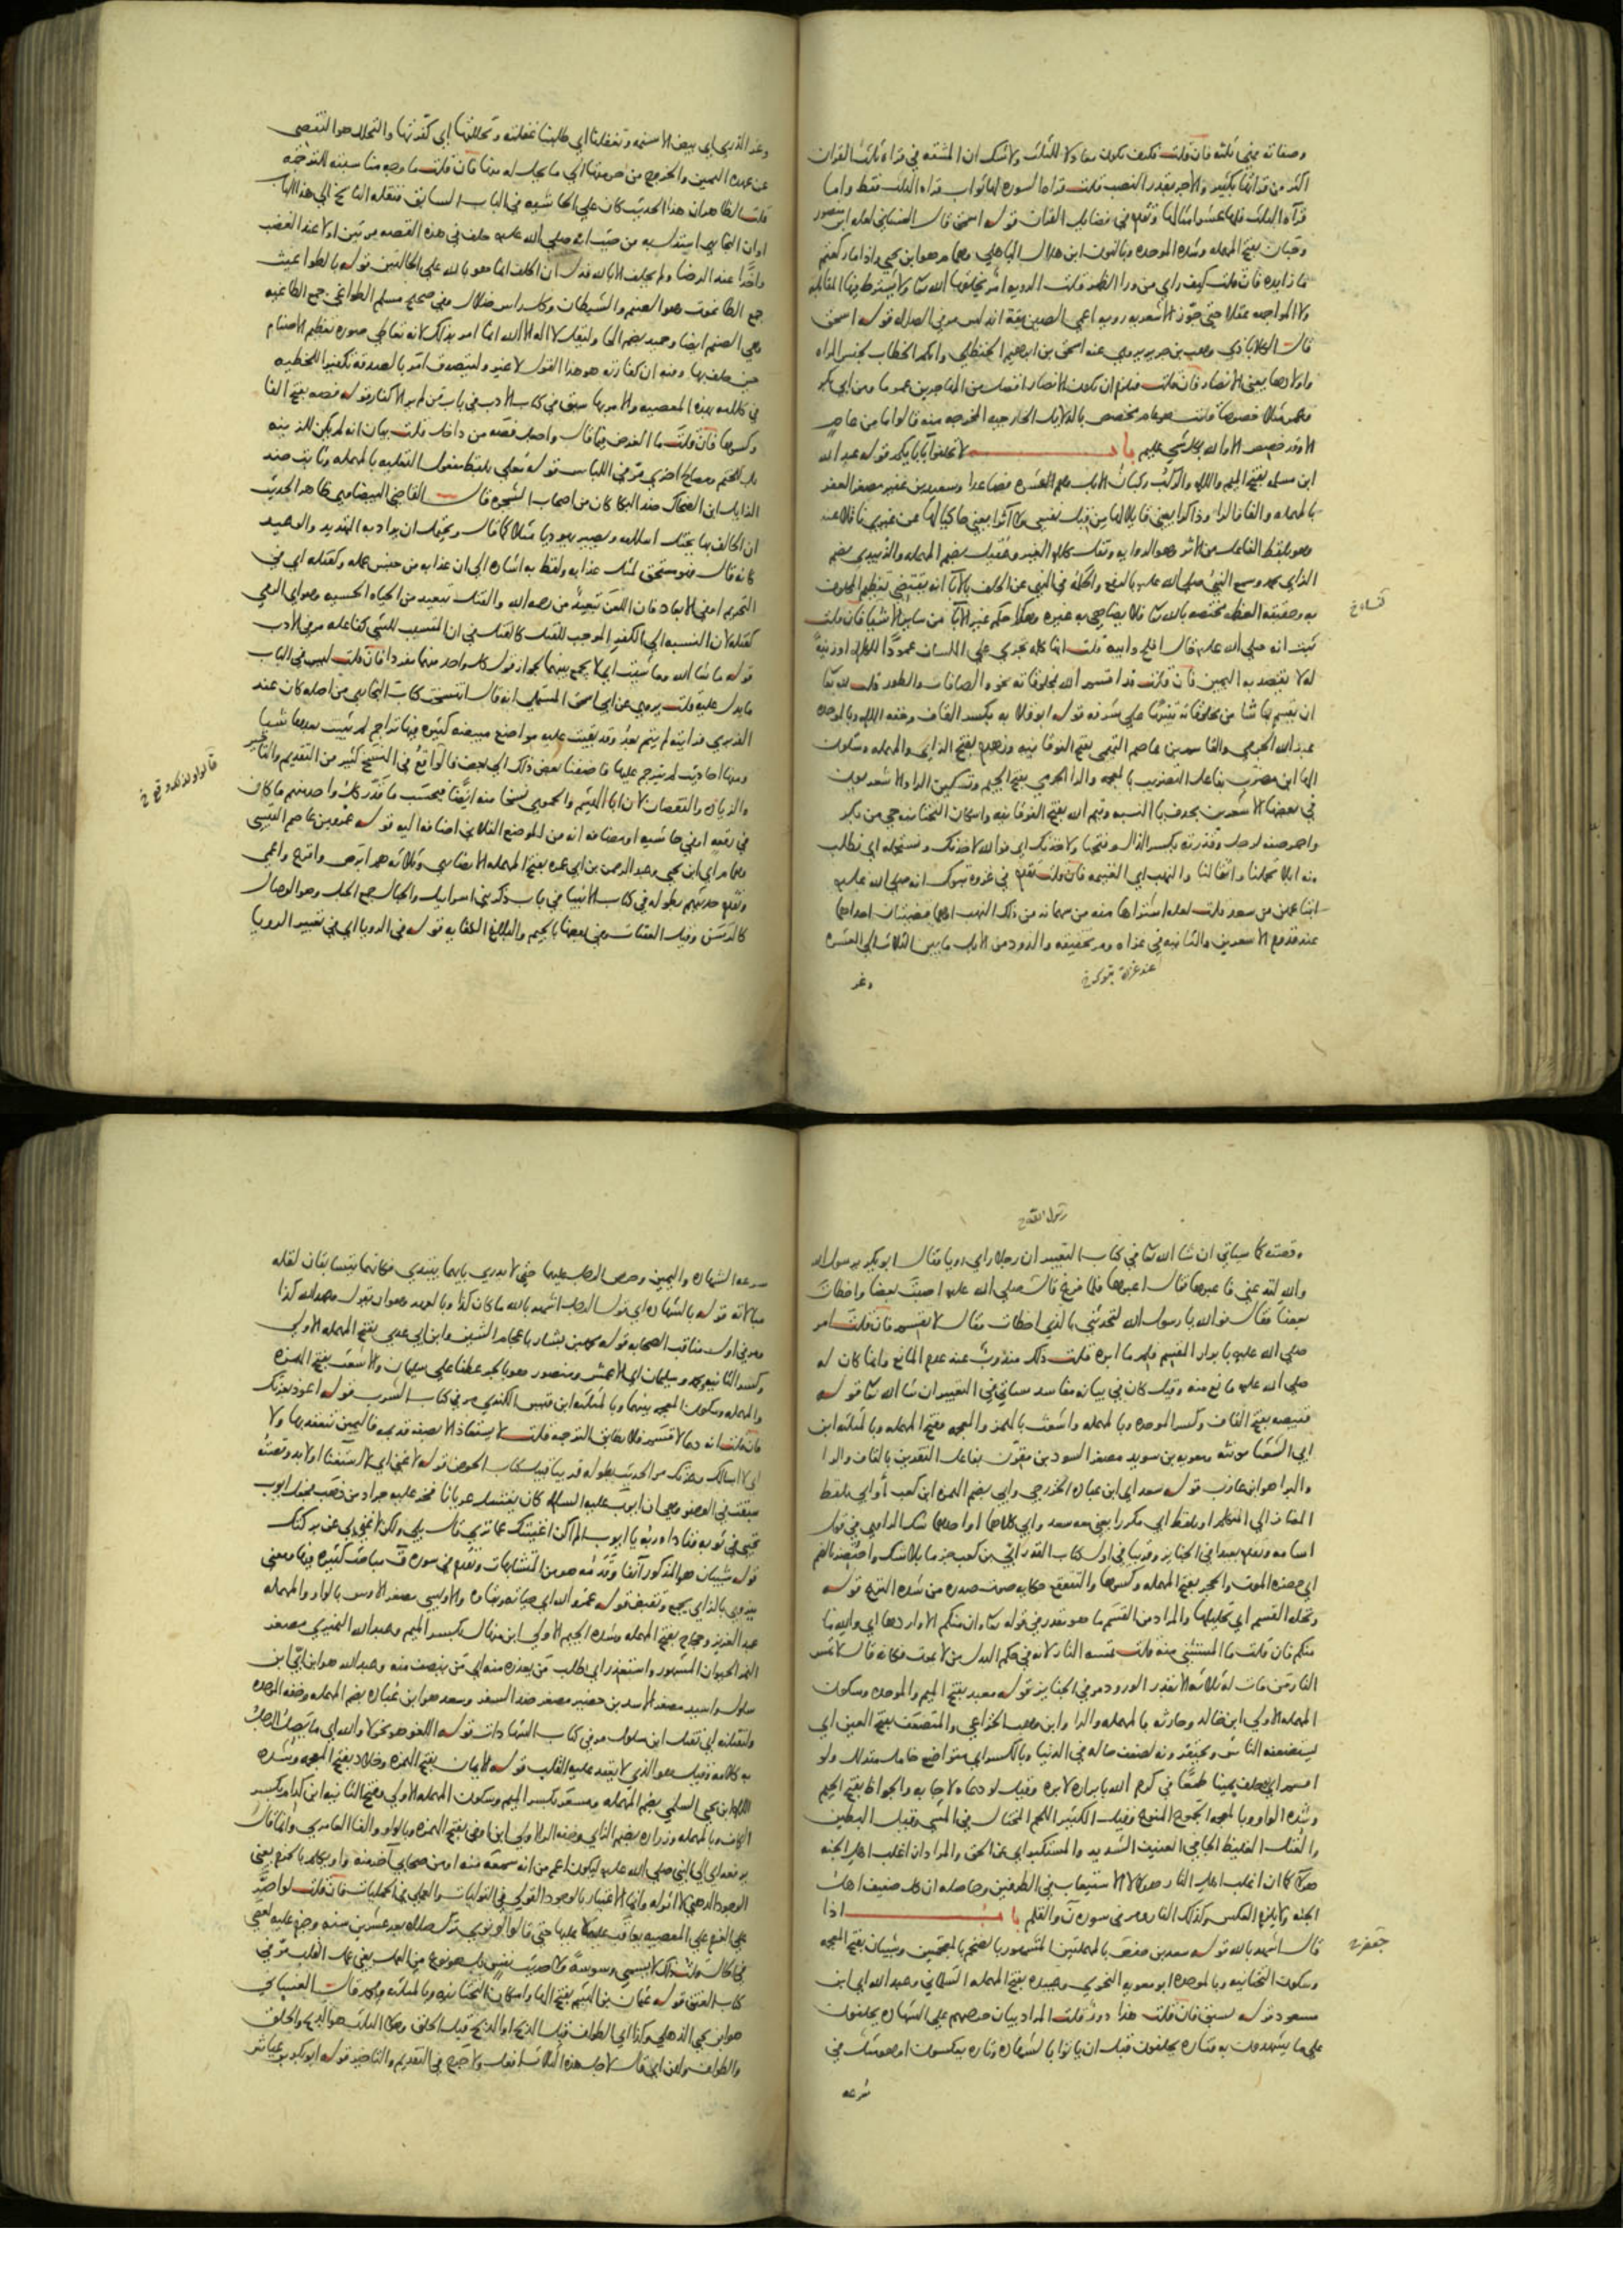 وصفاته يعني ثلثه فان قلت فكيف يكون معادلا للثلث ولا شك ان المشقة في قراءة ثلث القران
اكثر من قراتها بكثير والاجر بقدر النصب قلت قراءة السورة لها ثواب قراءة الثلث فقط واما
قراءة الثلث فلها عشر امثالها وتقدم في فضايل القران قوله اسحق قال الغساني لعله ابن منصور
وحبان بفتح المهملة وشدة الموحدة وبالنون ابن هلال الباهلي وهمام هو ابن يحيى واذا ما ركعتم
ما زايدة فان قلت كيف راي من ورا الظهر قلت الروية امر يخلقها الله تعا ولا يشترط فيها المقابلة
ولا المواجهة عقلا حتى جوز الاشعرية روية اعمى الصين بقة اندلس مر في الصلاة قوله اسحق
قال الكلاباذي وهب بن جرير يروي عنه اسحق بن ابراهيم الحنظلي وانكم الخطاب لجنس المراة
واولادها يعني الانصار فان قلت فلزم ان يكون الانصار افضل من المهاجرين عموما ومن ابي بكر
وعمر مثلا خصوصا قلت هو عام مخصص بالدلايل الخارجية المخرجة منه قالوا ما من عام
الا وقد خصص الا والله بكل شي عليم باب لا تحلفوا بابايكم قوله عبد الله
ابن مسلمة بفتح الميم واللام والركب ركبان الابل وهم العشرة فصاعدا وسعيد بن عفير مصغر العفر
بالمهملة والفا والرا وذاكرا يعني قايلا لها من قبل نفسي ولا اثرا يعني حاكيا لها عن غيري ناقلا عنه
وهو بلفظ الفاعل من الاثر وهو الرواية ونقل كلام الغير وعقيل بضم المهملة والزبيدي بضم
الزاي محمد وسمع النبي صلى الله عليه بالرفع والحكمة في النهي عن الحلف بالابا انه يقتضي تعظيم المحلوف
به وحقيقة العظمة مختصة بالله تعا فلا يضاهى به غيره وهكذا حكم غير الابا من ساير الاشيا فان قلت
ثبت انه صلى الله عليه قال افلح وابيه قلت انها كلمة تجري على اللسان عمودا للكلام او زينة
له لا يقصد به اليمين فان قلت قد اقسم الله بمخلوقاته نحو والصافات والطور قلت لله تعا
ان يقسم بما شا من مخلوقاته تنبيها على شرفه قوله ابو قلابة بكسر القاف وخفة اللام وبالموحدة
عبد الله الجرمي والقاسم بن عاصم التميمي بفتح الفوقانية وزهدم بفتح الزاي والمهملة وسكون
الها ابن مضرب بفاعل التضريب بالمعجمة والرا الجرمي بفتح الجيم وتسكين الرا والاشعريون
في بعضها الاشعرين بحذف يا النسبة وتيم الله بفتح الفوقانية واسكان التحتانية حي من بكر
واحمر صفة لرجل وقذرته بكسر الذال وفتحها ولاحدثك اي فوالله لاحدثنك ونستحمله اي نطلب
منه ابلا تحملنا واثقالنا والنهب اي الغنيمة فان قلت تقدم في غزوة تبوك انه صلى الله عليه
ابتاعهن من سعد قلت لعله اشتراها منه من سهمانه من ذلك النهب او هما قضيتان احداهما
عند قدوم الاشعريين والثانية في غزاه ومر تحقيقه والذود من الابل ما بين الثلاث الى العشرة
عند غزاة تبوك خ
وغر
وغر الذرى اي بيض الاسنمة وتغفلنا اي طلبنا غفلته وتحللتها اي كفرتها والتحلل هو التفصي
عن عهدة اليمين والخروج من حرمتها الى ما يحل له منها فان قلت ما وجه مناسبته للترجمة
قلت الظاهر ان هذا الحديث كان على الحاشية في الباب السابق فنقله الناسخ الى هذا الباب
او ان البخاري استدل به من حيث انه صلى الله عليه حلف في هذه القصة مرتين اولا عند الغضب
واخرا عند الرضا ولم يحلف الا بالله فدل ان الحلف انما هو بالله على الحالتين قوله بالطواغيت
جمع الطاغوت وهو الصنم والشيطان وكل راس ضلال وفي صحيح مسلم الطواغي جمع الطاغية
وهي الصنم ايضا وحميد بضم الحا وليقل لا اله الا الله انما امر بذلك لانه تعاطى صورة تعظيم الاصنام
حين حلف بها ومنه ان كفارته هو هذا القول لا غير وليتصدق امر بالصدقة تكفيرا للخطية
في كلامه بهذه المعصية والامر بها سبق في كتاب الادب في باب من لم ير الاكفار قوله فصه بفتح الفا
وكسرها فان قلت ما الغرض فيما قال واجعل فصه من داخل قلت بيان انه لم يكن للزينة
بل للختم ومصالح اخرى مر في اللباس قوله معلى بلفظ مفعول التعلية بالمهملة وثابت ضد
الزايل ابن الضحاك ضد البكا كان من اصحاب الشجرة قال القاضي البيضاوي ظاهر الحديث
ان الحالف بها يختل اسلامه ويصير يهوديا مثلا كما قال ويحتمل ان يراد به التهديد والوعيد
كانه قال فهو مستحق لمثل عذابه ولفظ به اشارة الى ان عذابه من جنس عمله وكقتله اي في
التحريم او في الابعاد فان اللعن تبعيد من رحمة الله والقتل تبعيد من الحياة الحسية ورمى اي الرمي
كقتله لان النسبة الى الكفر الموجب للقتل كالقتل في ان المتسبب للشي كفاعله مر في الادب
قوله ما شا الله وما شيت اي لا يجمع بينهما لجواز قول كل واحد منهما مفردا فان قلت ليس في الباب
ما يدل عليه قلت يروى عن ابي اسحق المستملي انه قال انتسخت كتاب البخاري من اصله كان عند
الفربري فرايته لم يتم بعد وقد بقيت عليه مواضع مبيضة كثيرة فيها تراجم لم يثبت بعدها شيا
ومنها احاديث لم يترجم عليها فاضفنا بعض ذلك الى بعض قالوا وقع في النسخ كثير من التقديم والتاخير
والزيادة والنقصان لان ابا الهيثم والحموي نسخا منه ايضا فبحسب ما قدر كل واحد منهم ما كان
في رقعة او في حاشية او مضافة انه من الموضع الفلاني اضافه اليه قوله عمرو بن عاصم القيسي
وهمام اي ابن يحيى وعبد الرحمن بن ابي عمرة بفتح المهملة الانصاري وثلاثة هم ابرص واقرع واعمى
وتقدم حديثهم بطوله في كتاب الانبيا في باب ذكر بني اسرايل والحبال جمع الحبل وهو الوصال
كالرسن وقيل العقبات وفي بعضها بالجيم والبلاغ الكفاية قوله في الرويا اي في تعبير الرويا
رسول الله خ
وقصته كما سياتي ان شا الله تعا في كتاب التعبير ان رجلا راي رويا فقال ابو بكر يرسول الله
والله لتدعني فاعبرها فقال اعبرها فلما فرغ قال صلى الله عليه اصبت بعضا واخطات
بعضا فقال فوالله يا رسول الله لتحدثني بالذي اخطات فقال لا تقسم فان قلت امر
صلى الله عليه بابرار القسم فلم ما ابره قلت ذلك مندوب عند عدم المانع وانما كان له
صلى الله عليه مانع منه وقيل كان في بيانه مفاسد سياتي في التعبير ان شا الله تعا قوله
قبيصة بفتح القاف وكسر الموحدة وبالمهملة واشعث بالهمز والمعجمة وفتح المهملة وبالمثلثة ابن
ابي الشعثا مونثه ومعوية بن سويد مصغر السود بن مقرن بفاعل التقرين بالقاف والرا
والبرا هو ابن عازب قوله سعد اي ابن عبادة الخزرجي وابي بضم الهمزة ابن كعب او ابي بلفظ
المضاف الى المتكلم او بلفظ ابي مكررا يعني معه سعد وابي كلاهما او احدهما شك الراوي في قول
اسامة وتقدم بعيدا في الجنايز وقريبا في اول كتاب القدر ابي بن كعب جزما بلا شك واحتضر بالضم
اي حضره الموت والحجر بفتح المهملة وكسرها والتقعقع حكاية صوت صدره من شدة النزع قوله
وتحلة القسم اي تحليلها والمراد من القسم ما هو مقدر في قوله تعا وان منكم الا واردها اي والله ما
منكم فان قلت ما المستثنى منه قلت تمسه النار لانه في حكم البدل من لا يموت فكانه قال لا تمس
النار من مات له ثلاثة الا بقدر الورود مر في الجنايز قوله معبد بفتح الميم والموحدة وسكون
المهملة الاولى ابن خالد وحارثة بالمهملة والرا وابن وهب الخزاعي والمتضعف بفتح العين اي
يستضعفه الناس ويحتقرونه لضعف حاله في الدنيا وبالكسر اي متواضع خامل متذلل ولو
اقسم اي حلف يمينا طمعا في كرم الله بابراره لابره وقيل لو دعاه لاجابه والجواظ بفتح الجيم
وشدة الواو وبالمعجمة الجموع المنوع وقيل الكثير اللحم المختال في المشي وقيل البطين
والعتل الغليظ الجافي العنيف الشديد والمستكبر اي عن الحق والمراد ان اغلب اهل الجنة
هولا كما ان اغلب اهل النار هولا لا الاستيعاب في الطرفين وحاصله ان كل ضعيف اهل
الجنة ولا يلزم العكس وكذلك النار مر في سورة ن والقلم باب اذا
قال اشهد بالله قوله سعد بن حفص بالمهملتين المشهور بالضخم بالمعجمتين وشيبان بفتح المعجمة
وسكون التحتانية وبالموحدة ابو معوية النحوي وعبيدة بفتح المهملة السلماني وعبد الله اي ابن
مسعود قوله يسبق فان قلت هذا دور قلت المراد بيان حرصهم على الشهادة يحلفون
على ما يشهدون به فتارة يحلفون قبل ان ياتوا بالشهادة وتارة يعكسون او هو مثل في
سرعة
سرعة الشهادة واليمين وحرص الرجل عليهما حتى لا يدري بايهما يبتدي فكانهما يتسابقان لقلة
مبالاته قوله بالشهادة اي بقول الرجل اشهد بالله ما كان كذا وبالعهد وهو ان يقول وعهد الله كذا
ومر في اول مناقب الصحابة قوله محمد بن بشار باعجام الشين وابن ابي عدي بفتح المهملة الاولى
وكسر الثانية محمد وسليمان اي الاعمش ومنصور هو بالجر عطفا على سليمان والاشعث بفتح الهمزة
والمهملة وسكون المعجمة بينهما وبالمثلثة ابن قيس الكندي مر في كتاب الشرب قوله اعوذ بعزتك
فان قلت انه دعا لا قسم فلا يطابق الترجمة قلت لا يستعاذ الا بصفة قديمة فاليمين تنعقد بها ولا
اي لا اسالك وعزتك مر الحديث بطوله قريبا قبيل كتاب الحوض قوله لا غنى اي لا استغنا او لا بد وقصته
سبقت في الوضو وهي ان ايوب عليه السلام كان يغتسل عريانا فخر عليه جراد من ذهب فجعل ايوب
يحتثي في ثوبه فناداه ربه يا ايوب الم اكن اغنيتك عما ترى قال بلى ولكن لا غنى بي عن بركتك
قوله شيبان هو المذكور انفا وقدمه هو من المتشابهات وتقدم في سورة ق مباحث كثيرة فيها ومعنى
يزوى بالزاي يجمع وتقبض قوله عمر الله اي حياته وبقاه والاويسي مصغر الاوس بالواو والمهملة
عبد العزيز وحجاج بفتح المهملة وشدة الجيم الاولى ابن منهال بكسر الميم وعبد الله النميري مصغر
النمر الحيوان المشهور واستعذر اي طلب من يعذره منه اي من ينصف منه وعبد الله هو ابن ابي ابن
سلول واسيد مصغر الاسد بن حضير مصغر ضد السفر وسعد هو ابن عبادة بضم المهملة وخفة الموحدة
ولنقتلنه اي نقتل ابن سلول مر في كتاب الشهادات قوله اللغو هو نحو لا والله اي ما يصل الرجل
به كلامه وقيل هو الذي لا يعقد عليه القلب قوله لايمان بفتح الهمزة وخلاد بفتح المعجمة وشدة
اللام ابن يحيى السلمي بضم المهملة ومسعر بكسر الميم وسكون المهملة الاولى وفتح الثانية ابن كدام بكسر
الكاف وبالمهملة وزرارة بضم الزاي وخفة الرا الاولى ابن اوفى بفتح الهمزة وبالواو والفا العامري وانما قال
يرفعه اي الى النبي صلى الله عليه ليكون اعم من انه سمعه منه او من صحابي اخر منه او يكلم بالجزم يعني
الوجود الذهني لا اثر له وانما الاعتبار بالوجود القولي في القوليات والعملي في العمليات فان قلت لو اصر
على العزم على المعصية يعاقب عليه لا عليها حتى قالوا لو نوى ترك صلاة بعد عشرين سنة وجزم عليه لعصى
في الحال قلت ذلك لا يسمى وسوسة ولا حديث نفس بل هو نوع من العمل يعني عمل القلب مر في
كتاب العتق قوله عثمان بن الهيثم بفتح الها واسكان التحتانية وبالمثلثة ومحمد قال الغساني
هو ابن يحيى الذهلي وكذا اي الطواف قبل الذبح او الذبح قبل الحلق وهولا الثلاث هو الذبح والحلق
والطواف ولهن اي قال لاجل هذه الثلاث افعل ولا حرج في التقديم والتاخير قوله ابو بكر بن عياش